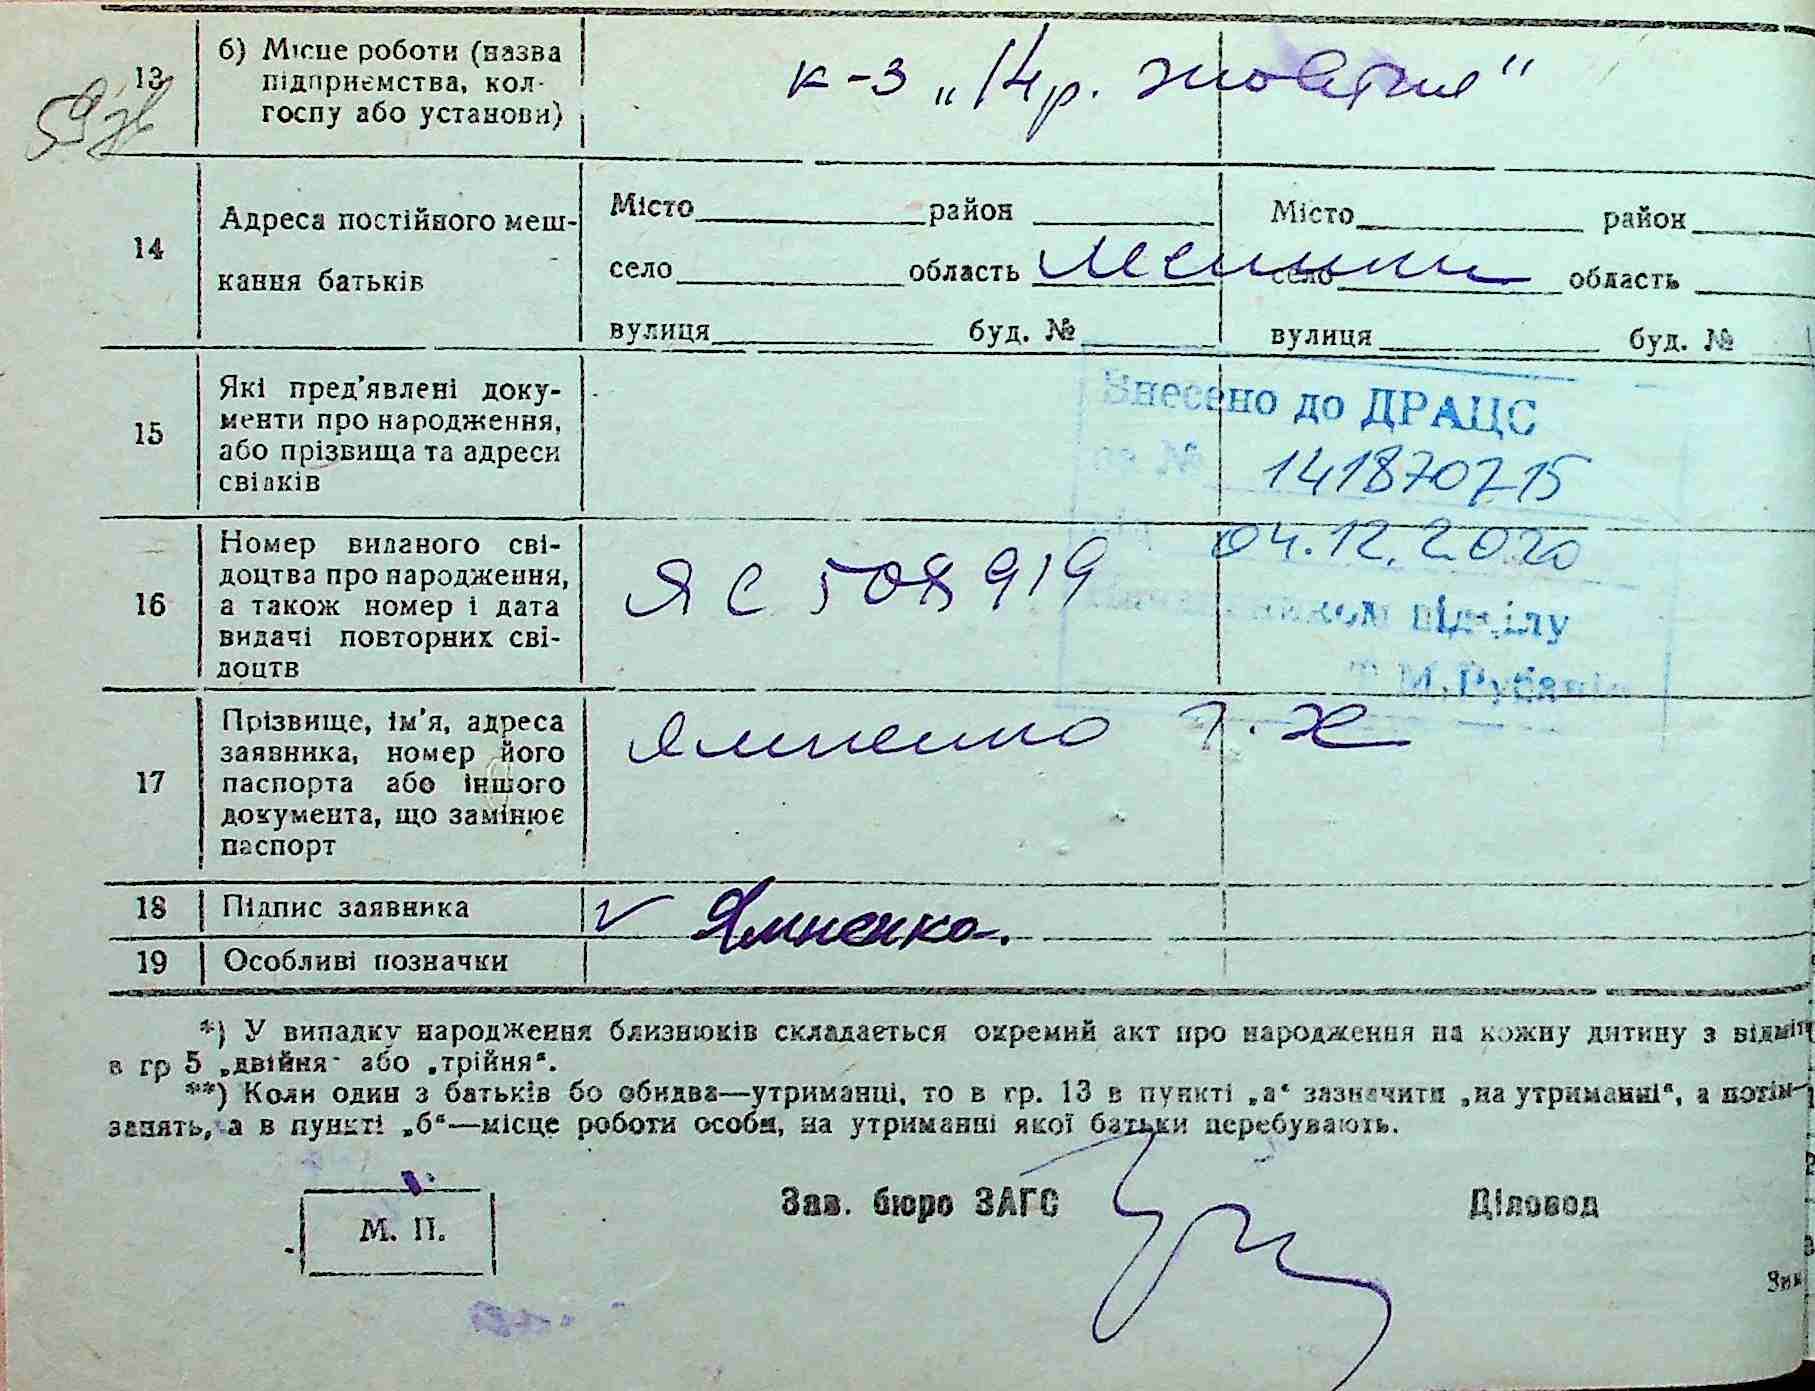 13
б) Місце роботи (назва
підприємства, кол-
госпу або установи)
к-з „Чр. жовтня"
59
14
Адреса постійного меш-
кання батьків
Місто район
село область
вулиця буд. №
Місто район
село область
вулиця буд. №
15
Які пред'явлені доку-
менти про народження,
або прізвища та адреси
свідків
Внесено до ДРАЦС
за № 141870715
від 04.12.2020
Начальником відділу
16
Номер виданого сві-
доцтва про народження,
а також номер і дата
видачі повторних сві-
доцтв
ЯС 508919
17
Прізвище, ім'я, адреса
заявника, номер його
паспорта або іншого
документа, що замінює
паспорт
Ямненко
18
Підпис заявника
Ямненко.
19
Особливі позначки
*) У випадку народження близнюків складається окремий акт про народження на кожну дитину з відміт
в гр 5 „двійня" або „трійня".
**) Коли один з батьків бо обидва—утриманці, то в гр. 13 в пункті „а" зазначити „на утриманні", а потім
занять, а в пункті „б"—місце роботи особи, на утриманні якої батьки перебувають.
М. П.
Зав. бюро ЗАГС
Діловод